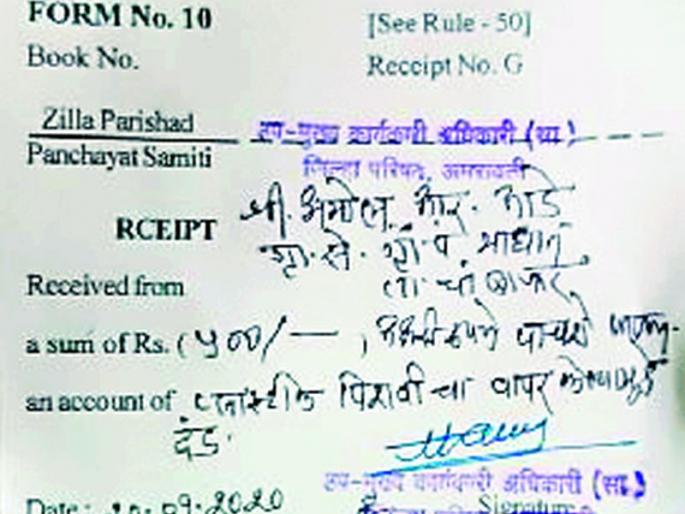 FORM No. 10 [See Rule - 50]
Book No. Receipt No. G
Zilla Parishad उप-मुख्य कार्यकारी अधिकारी (सा.)
Panchayat Samiti जिल्हा परिषद, अमरावती
श्री. अमोल आर. काडे
RCEIPT ग्रा. से. ग्रा. पं.
Received from ता. चां. बाजार
a sum of Rs. (५००/— ), पाचशे
an account of प्लास्टीक पिशवी चा वापर केल्यामुळे
दंड.
उप-मुख्य कार्यकारी अधिकारी (सा.)
Date : 09.2020 Signature